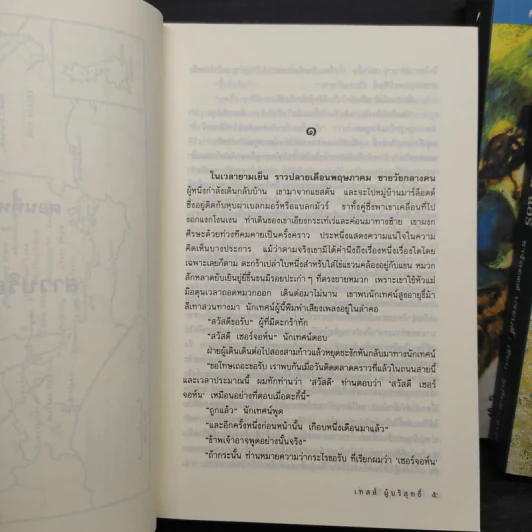 ๑
ในเวลายามเย็น ราวปลายเดือนพฤษภาคม ชายวัยกลางคน
ผู้หนึ่งกำลังเดินกลับบ้าน เขามาจากแชสตัน และจะไปหมู่บ้านมาร์ล็อตต์
ซึ่งอยู่ติดกับหุบผาเบลกมอร์หรือแบลกมัวร์ ขาทั้งคู่ซึ่งพาเขาเคลื่อนที่ไป
งอกแงกโรงเรง ท่าเดินของเขาเอียงกระเท่เร่และค่อนมาทางซ้าย เขาผงก
ศีรษะด้วยท่วงทีคมคายเป็นครั้งคราว ประหนึ่งแสดงความแน่ใจในความ
คิดเห็นบางประการ แม้ว่าตามจริงเขามิได้คำนึงถึงเรื่องหนึ่งเรื่องใดโดย
เฉพาะเลยก็ตาม ตะกร้าเปล่าใบหนึ่งสำหรับใส่ไข่แขวนคล้องอยู่กับแขน หมวก
สักหลาดยับเยินขุยขึ้นขนมีรอยปะเก่าๆ ที่ตรงชายหมวก เพราะเขาใช้หัวแม่
มือดุนเวลาถอดหมวกออก เดินต่อมาไม่นาน เขาพบนักเทศน์สูงอายุขี่ม้า
สีเทาสวนทางมา นักเทศน์ผู้นี้พึมพำเสียงเพลงอยู่ในลำคอ
“สวัสดีขอรับ” ผู้ที่มีตะกร้าทัก
“สวัสดี เซอร์จอห์น” นักเทศน์ตอบ
ฝ่ายผู้เดินเดินต่อไปสองสามก้าวแล้วหยุดชะงักหันกลับมาทางนักเทศน์
“ขอโทษเถอะขอรับ เราพบกันเมื่อวันติดตลาดคราวที่แล้วในถนนสายนี้
และเวลาประมาณนี้ ผมทักท่านว่า ‘สวัสดี’ ท่านตอบว่า ‘สวัสดี เซอร์
จอห์น’ เหมือนอย่างที่ตอบเมื่อตะกี้นี้”
“ถูกแล้ว” นักเทศน์พูด
“และอีกครั้งหนึ่งก่อนหน้านั้น เกือบหนึ่งเดือนมาแล้ว”
“ข้าพเจ้าอาจพูดอย่างนั้นจริง”
“ถ้ากระนั้น ท่านหมายความว่ากระไรขอรับ ที่เรียกผมว่า ‘เซอร์จอห์น’
เทสส์ ผู้บริสุทธิ์ ๕